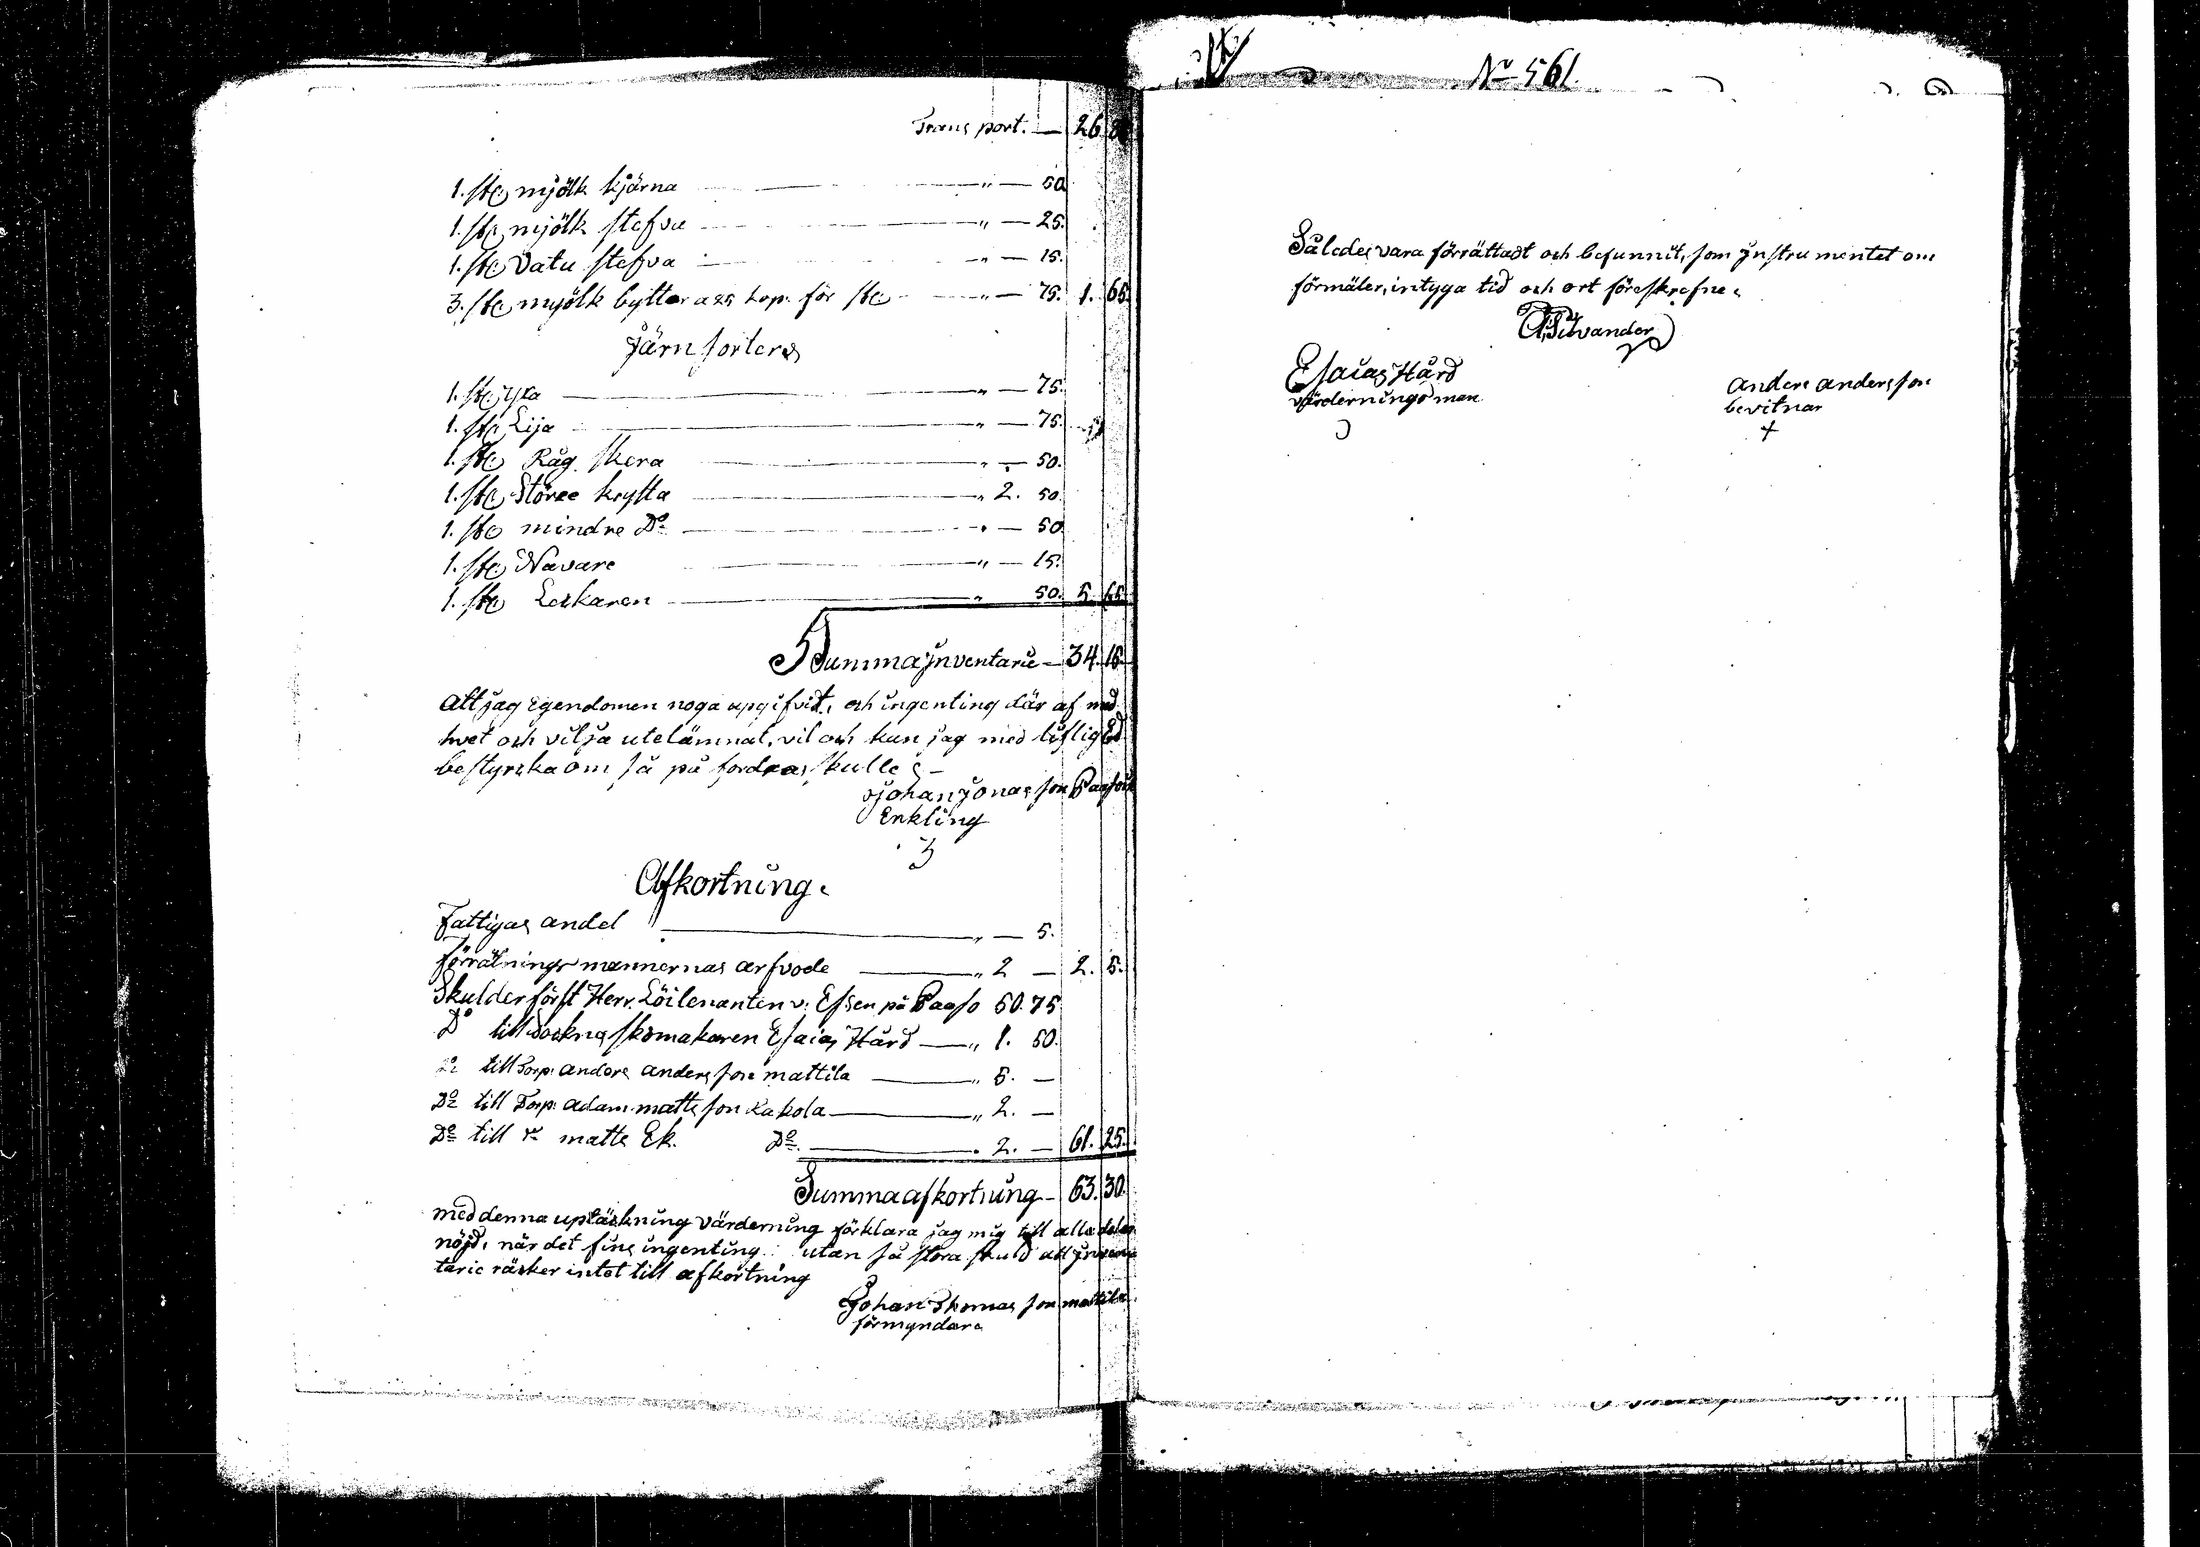 Transport. — 26
1. st. mjölk kjärna — " — 50
1. st. mjölk stefva — " — 25.
1. st. Vatu stefva — " — 15.
3. st. mjölk byttor a 25 kop. för st. — " — 75. 1. 65.
Järn sorter
1. st. yxa — " — 75.
1. st. Lija — " — 75.
1. st. Råg skera — " — 50.
1. st. Störee krytta — " 2. 50
1. st. mindre Do — " — 50
1. st. Navare — " — 15.
1. st. Leskaren — " 50. 5. 65
Summa Jnventarie — 34. 15
Att jag egendomen noga upgifvit, och ingenting där af med
hvet och vilja utelämnat, vil och kan jag med liflig Ed
bestyrska om så på fordras skulle
Johan Jonasson Paaso
Enkling
Afkortning.
Fattigas andel — " — 5.
förrätnings mannernas arfvode — " 2 — 2. 5.
Skulder först Herr. Löilenanten v: Essen på Paaso 50. 75
Do till Sockne skomakaren Esaias Hård — " 1. 50.
Do till Torp: anders andersson mattila — " 5. —
Do till Torp: adam mattsson Kakola — " 2. —
Do till matts Ek. Do. — " 2. — 61. 25.
Summa afkortning — 63. 30.
med denna uptäskning värderning förklara jag mig till alla delar
nöjd, när det fins ingenting utan så stora skuld att Jnven
tarie räsker intet till afkortning
Johan Thomasson mattila
förmyndare
No 561.
Således vara förrättadt och befunnit, som Jnstrumentet om
förmäler, intyga tid och ort föreskrefne.
Silvander
Esaias Hård
värdernings man
anders andersson
bevitnar
+